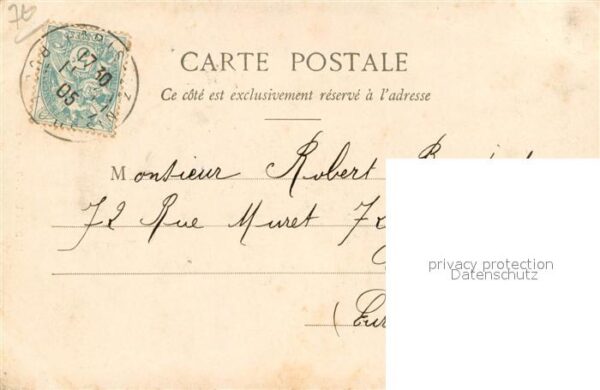 70
PARIS
17 30
05
CARTE POSTALE
Ce côté est exclusivement réservé à l'adresse
Monsieur Robert
72 Rue Muret 72
(Eur
privacy protection
Datenschutz